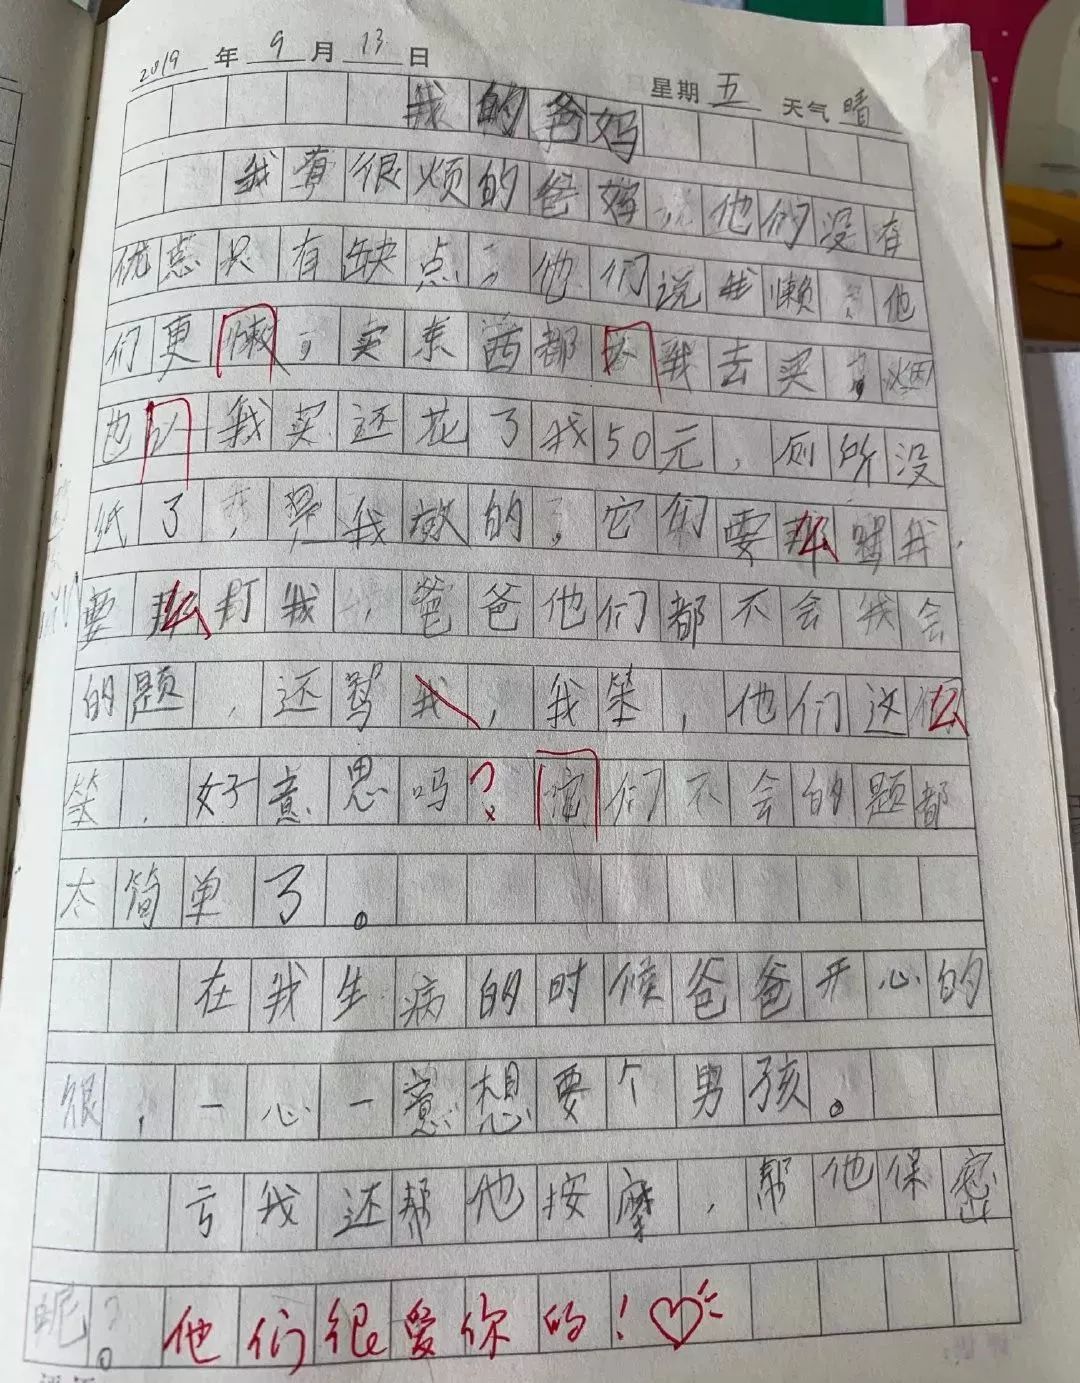 2019年9月13日 星期五 天气晴
我的爸妈
我有很烦的爸妈说他们没有
优点只有缺点,他们说我懒,他
们更懒,卖东西都 我去买,烟
也 我买还花了我50元,厕所没
纸了,是我 的,它们要么骂我,
要么打我,爸爸他们都不会我会
的题,还骂我,我笨,他们这么
笨,好意思吗?它们不会的题都
太简单了。
在我生病的时候爸爸开心的
很,一心一意想要个男孩。
亏我还帮他按摩,帮他保密
呢。他们很爱你的!